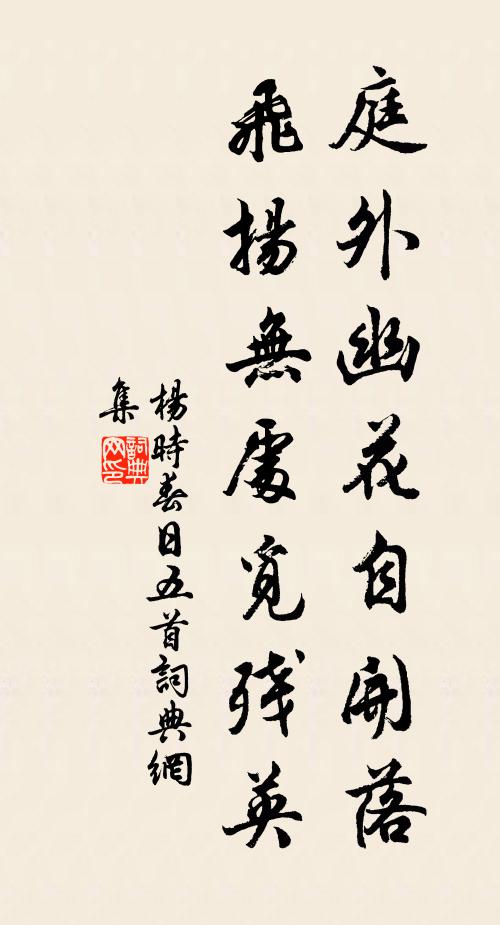 庭外幽花自開落
飛揚無處覓殘英
楊時春日五首詞典網
集
詞典网印